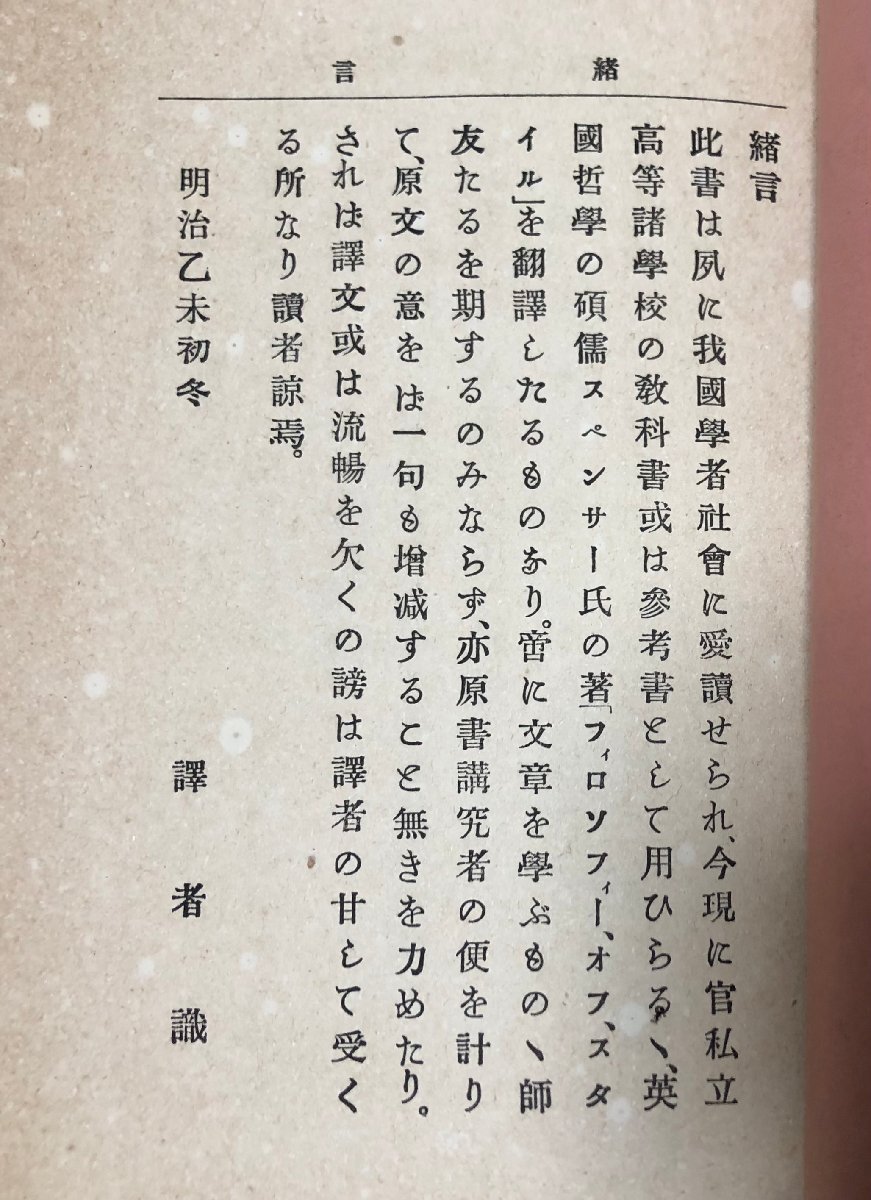 緒言
緒言
此書は夙に我國學者社會に愛讀せられ、今現に官私立
高等諸學校の敎科書或は參考書として用ひらるヽ、英
國哲學の碩儒スペンサー氏の著「フィロソフィー、オフ、スタ
イル」を翻譯したるものなり。啻に文章を學ぶものヽ師
友たるを期するのみならず、亦原書講究者の便を計り
て、原文の意をば一句も增减すること無きを力めたり。
されば譯文或は流暢を欠くの謗は譯者の甘して受く
る所なり讀者諒焉。
明治乙未初冬
譯者識